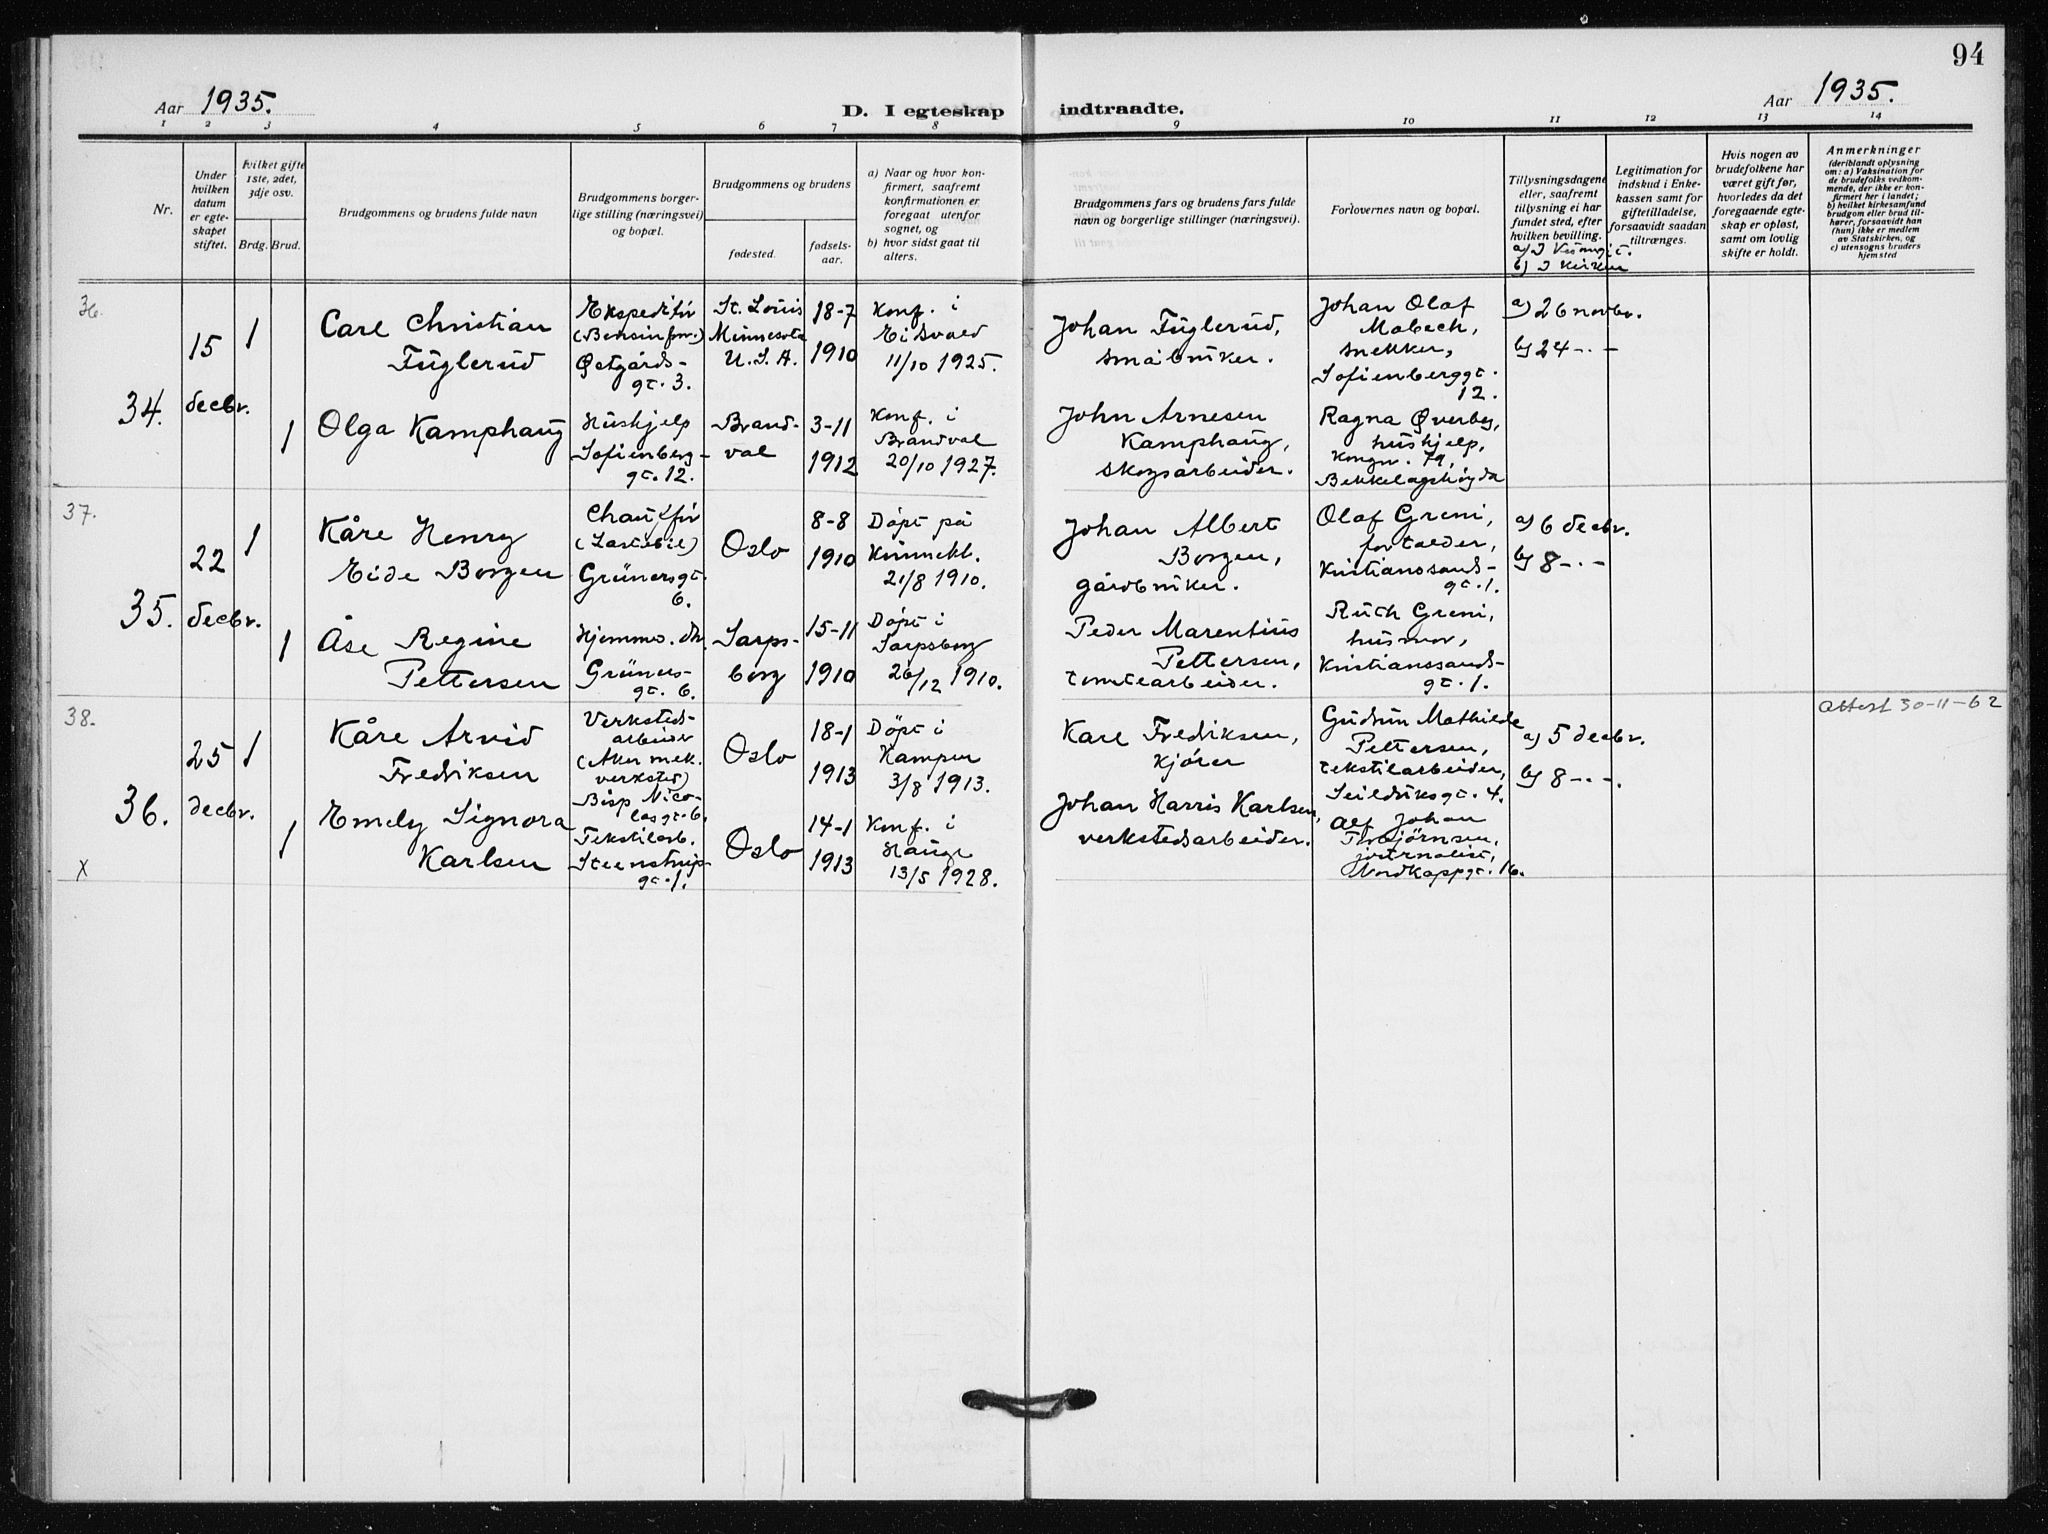 94
Aar 1935.
D. I egteskap indtraadte.
Aar 1935.
1 2 3 4 5 6 7 8 9 10 11 12 13 14
Nr.
Under
hvilken
datum
er egte-
skapet
stiftet.
hvilket gifte
1ste, 2det,
3dje osv.
Brdg. Brud.
Brudgommens og brudens fulde navn
Brudgommens borger-
lige stilling (næringsvei)
og bopæl.
Brudgommens og brudens
fødested.
fødsels-
aar.
a) Naar og hvor kon-
firmert, saafremt
konfirmationen er
foregaat utenfor
sognet, og
b) hvor sidst gaat til
alters.
Brudgommens fars og brudens fars fulde
navn og borgerlige stillinger (næringsvei).
Forlovernes navn og bopæl.
Tillysningsdagene
eller, saafremt
tillysning ei har
fundet sted, efter
hvilken bevilling.
b) I kirken
Legitimation for
indskud i Enke-
kassen samt for
giftetilladelse,
forsaavidt saadan
tiltrænges.
Hvis nogen av
brudefolkene har
været gift før,
hvorledes da det
foregaaende egte-
skap er opløst,
samt om lovlig
skifte er holdt.
Anmerkninger
(deriblandt oplysning
om: a) Vaksination for
de brudefolks vedkom-
mende, der ikke er kon-
firmert her i landet;
b) hvilket kirkesamfund
brudgom eller brud til-
hører, forsaavidt han
(hun) ikke er medlem
av Statskirken, og
c) utensogns bruders
hjemsted
36.
34.
15
decbr.
1
Carl Christian
Fuglerud
Ekspeditør
(Bensinforr.)
Østgårds-
gt. 3.
St. Louis
Minnesota
U.S.A.
18-7
1910
Konf. i
Eidsvold
11/10 1925.
Johan Fuglerud,
småbruker.
Johan Olaf
Mobech,
snekker,
Sofienberggt.
12.
a) 26 novbr.
b) 24 -.-
1
Olga Kamphaug
Hushjelp
Sofienberg-
gt. 12.
Brand-
val
3-11
1912
Konf. i
Brandval
20/10 1927.
John Arnesen
Kamphaug,
skogsarbeider.
Ragna Øverby,
hushjelp,
Kongv. 79,
Bekkelagshøgda
37.
35.
22
decbr.
1
Kåre Henry
Eide Borgen
Chauffør
(Lastebil)
Grünersgt.
6.
Oslo
8-8
1910
Døpt på
Kvinnekl.
21/8 1910.
Johan Albert
Borgen,
gårdbruker.
Olaf Greni,
fortolder,
Kristianssands-
gt. 1.
a) 6 decbr.
b) 8 -.-
1
Åse Regine
Pettersen
Hjemmev. dtr.
Grüners-
gt. 6.
Sarps-
borg
15-11
1910
Døpt i
Sarpsborg
26/12 1910.
Peder Marentius
Pettersen,
tomtearbeider.
Ruth Greni,
husmor,
Kristianssands-
gt. 1.
38.
36.
X
25
decbr.
1
Kåre Arvid
Fredriksen
Verksteds-
arbeider
(Aker mek.
verksted)
Bisp Nico-
lasgt. 6.
Oslo
18-1
1913
Døpt i
Kampen
3/8 1913.
Kare Fredriksen,
kjører
Gudrun Mathilde
Pettersen,
tekstilarbeider,
Seilduksgt. 4.
a) 5 decbr.
b) 8 -.-.
Attest 30-11-62
1
Emely Signora
Karlsen
Tekstilarb.
Steenstrups-
gt. 1.
Oslo
14-1
1913
Konf. i
Hauge
13/5 1928.
Johan Harris Karlsen,
verkstedsarbeider.
Alf Johan
Torbjørnsen,
journalist,
Nordkappgt. 16.